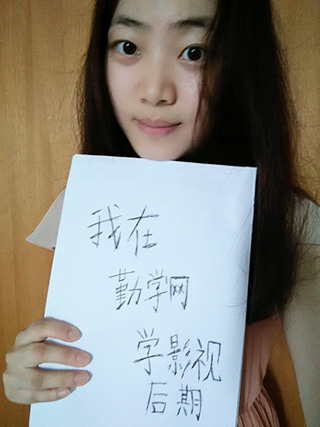 我在
勤学网
学影视
后期